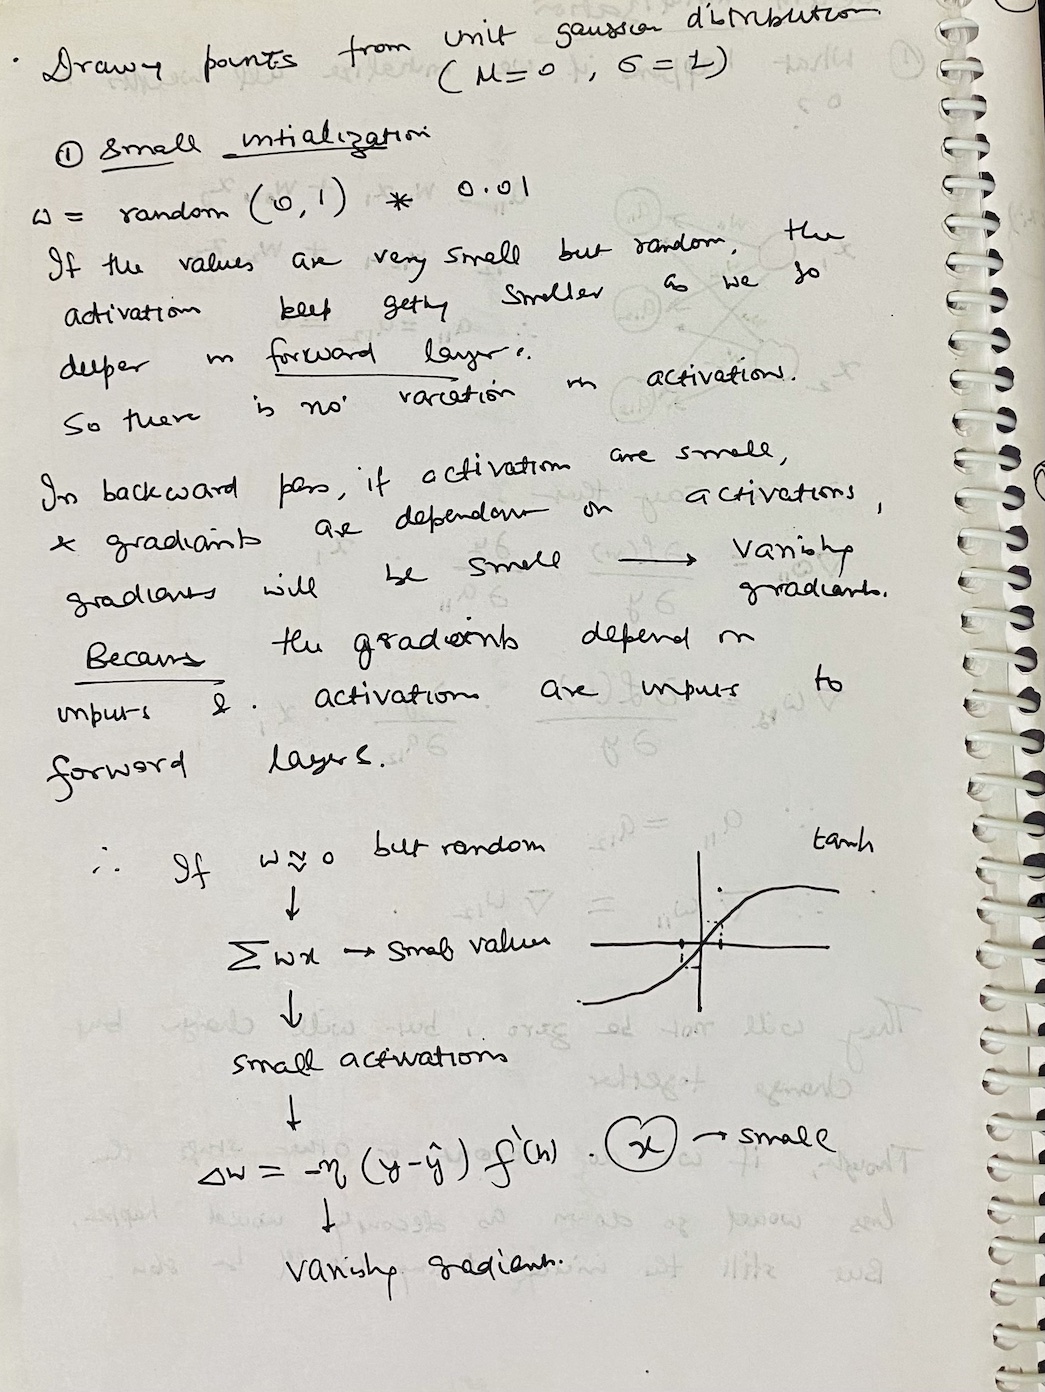 · Drawing points from unit gaussian distribution
(μ=0, σ=1)
① Small intialization
ω = random (0,1) * 0.01
If the values are very small but random, the
activation keep getting smaller as we go
deeper in forward layers.
So there is no variation in activations.
In backward pass, if activation are small,
& gradients are dependent on activations,
gradients will be small → Vanishing
gradients.
Because the gradients depend on
inputs & activations are inputs to
forward layers.
∴ If ω ≈ 0 but random
tanh
↓
Σωx → small values
↓
small activations
↓
Δw = -η (y-ŷ) f'(h) . x → small
↓
Vanishing gradients.